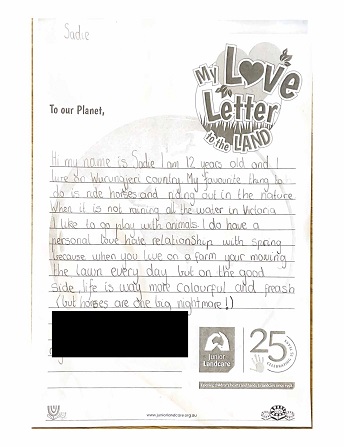 Sadie
My Love
Letter
to the LAND
To our Planet,
Hi my name is Sadie I am 12 years old and I
live on Wurundjeri country. My favourite thing to
do is ride horses and riding out in the nature
when it is not raining all the water in Victoria
I like to go play with animals. I do have a
personal love hate relationship with spring
because when you live on a farm your mowing
the lawn every day but on the good
side life is way more colourful and freash
(but horses are one big nightmare!)
Junior
Landcare
25
www.juniorlandcare.org.au